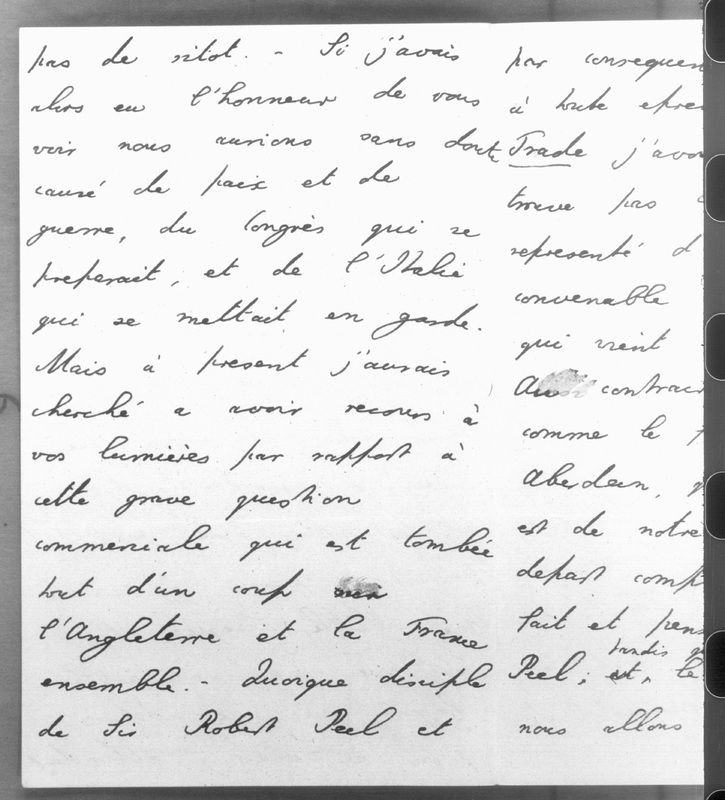 pas de sitot. - Si j'avais
alors eu l'honneur de vous
voir nous aurions sans doute
causé de paix et de
guerre, du Congrès qui se
preperait, et de l'Italie
qui se mettait en garde.
Mais à present j'aurais
cherché a avoir recours à
vos lumières par rapport à
cette grave question
commerciale qui est tombée
tout d'un coup sur
l'Angleterre et la France
ensemble. - Quoique disciple
de Sir Robert Peel et
par consequen
à toute epre
Trade j'avo
trouve pas
representé d
convenable
qui vient
contrair
comme le
Aberdeen,
est de notre
depart comp
fait et pens
tandis
Peel; et, le
nous allons